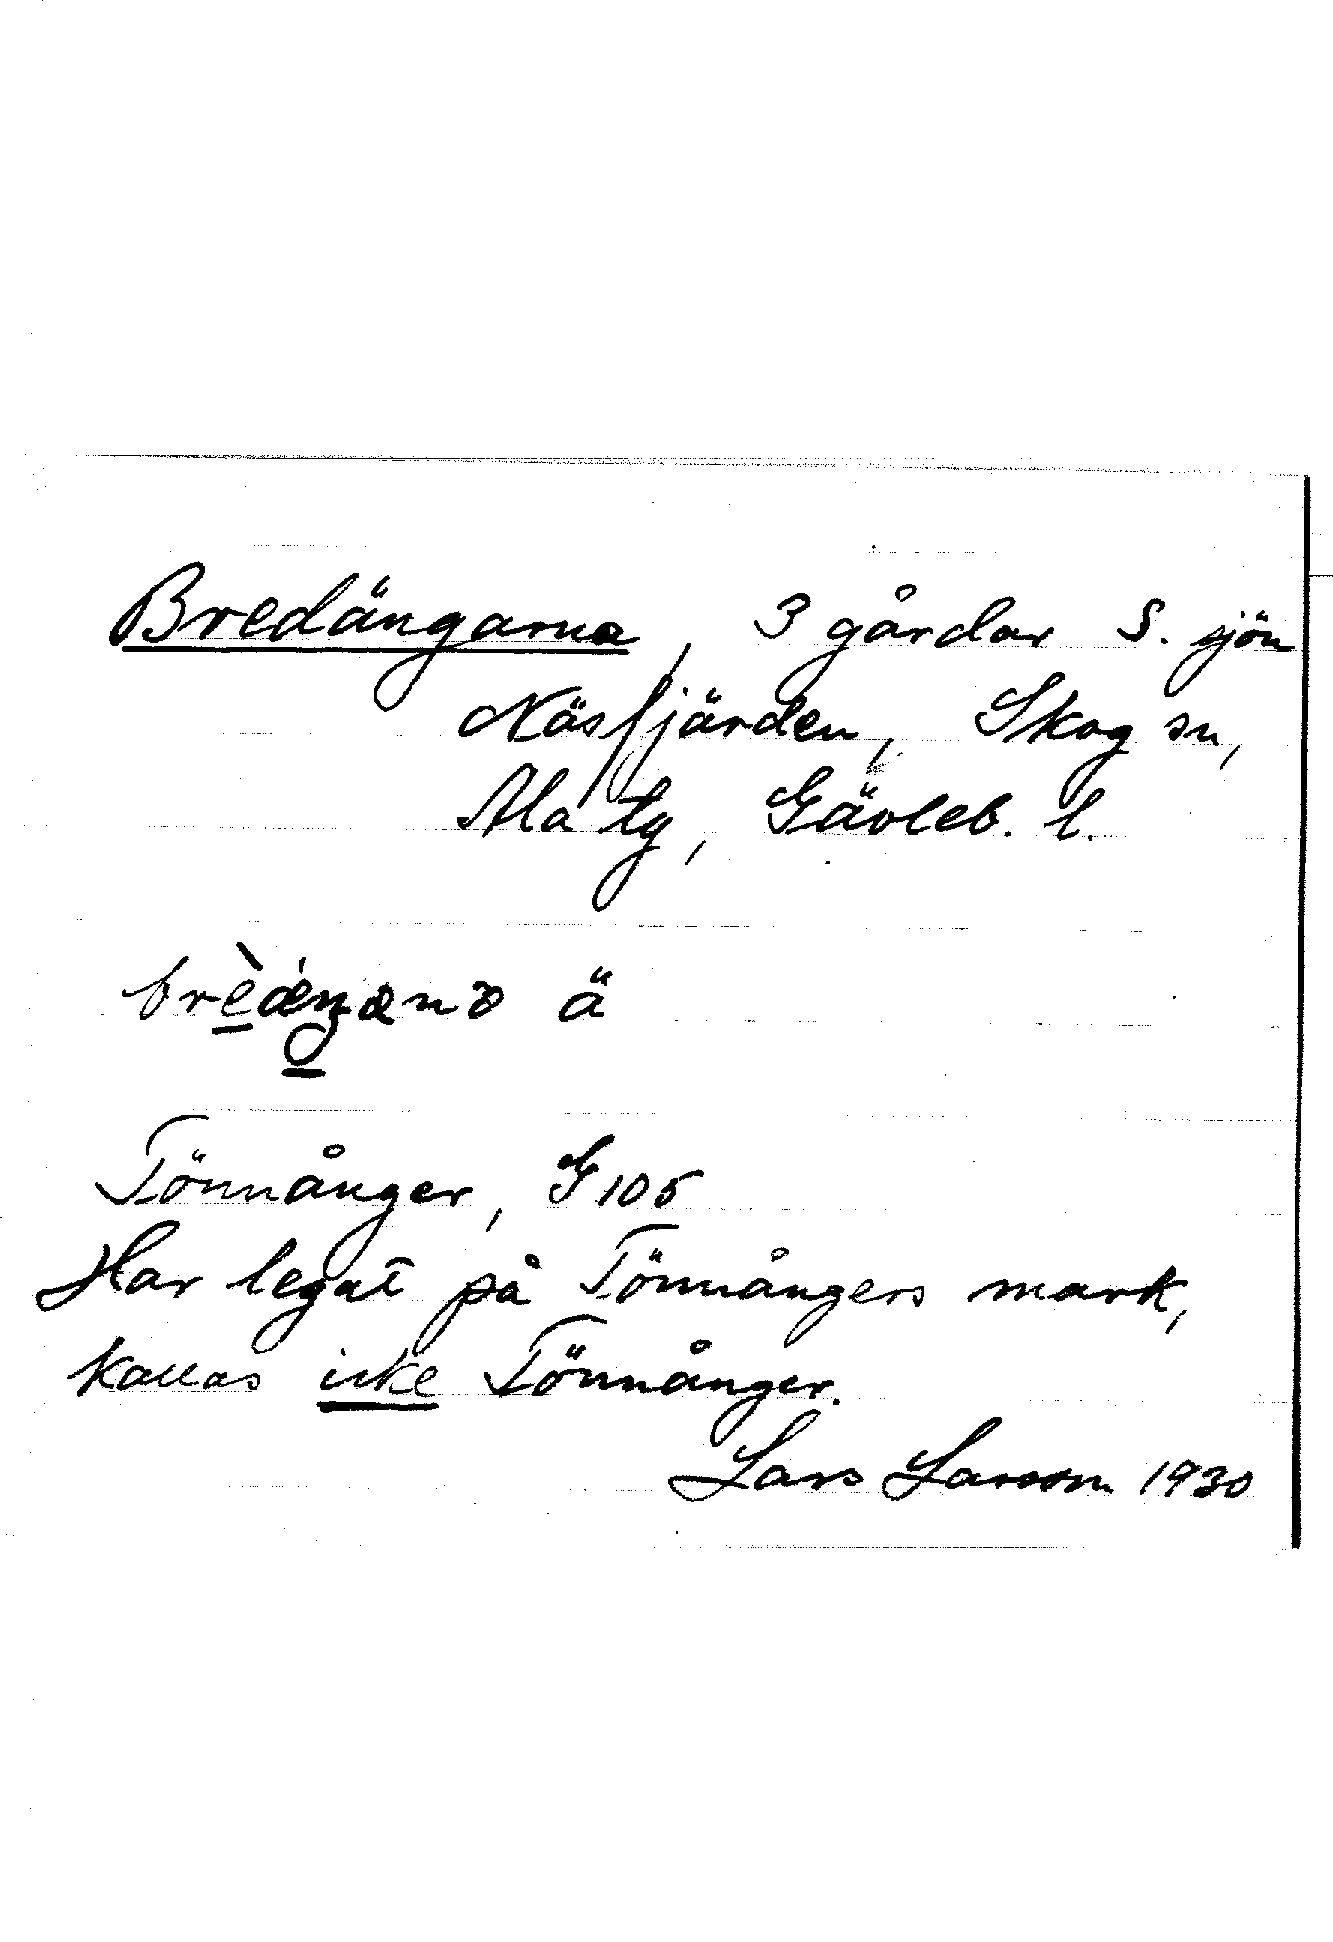 Bredängarna, 3 gårdar S. sjön
Näsfjärden, Skog sn,
Ala tg, Gävleb. l.
ä
Tönnånger, G 105
Har legat på Tönnångers mark,
kallas icke Tönnånger.
Lars Larsson 1930